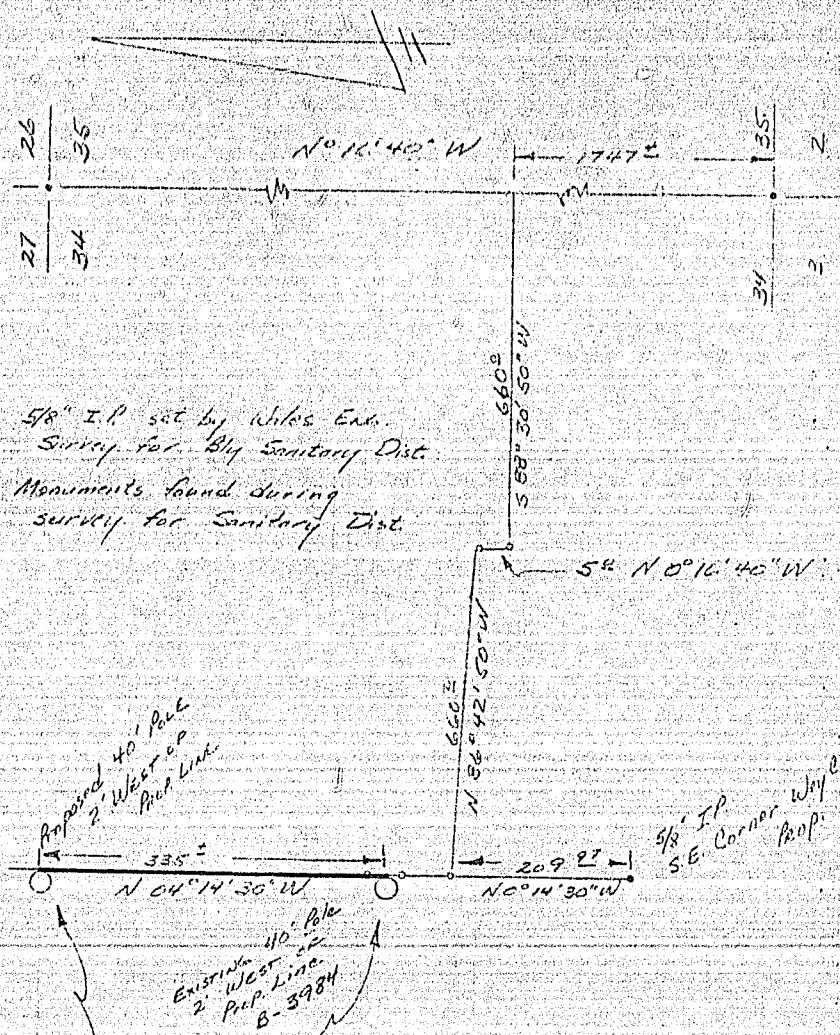 26 35
27 34
N 0° 16' 40" W
1747 ±
35 2
34
660
S 88° 30' 50" W
5/8" I.P. set by Wiles Eng.
Survey for Bly Sanitary Dist.
Monuments found during
survey for Sanitary Dist.
N 0° 16' 40" W
660
N 86° 42' 50" W
Proposed 40' Pole
2' West of
Prop. Line
335 ±
N 04° 14' 30" W
209
N 0° 14' 30" W
5/8" I.P.
S.E. Corner
Prop.
Existing 40' Pole
2' West of
Prop. Line
B-3984